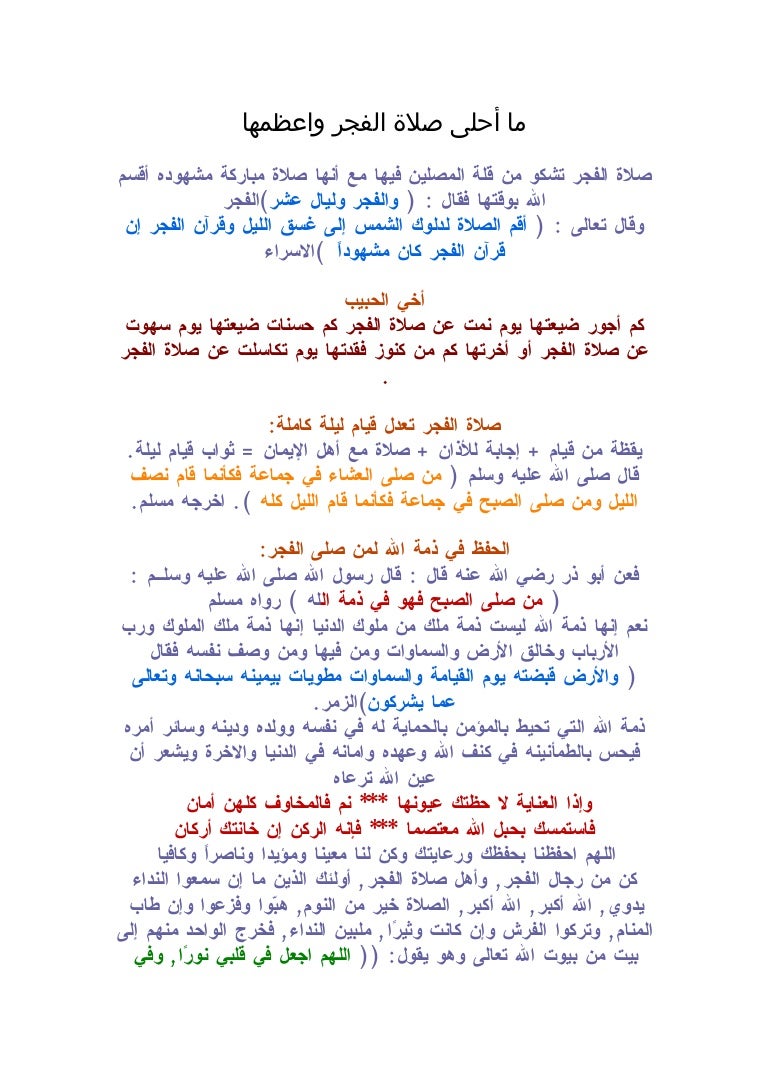 ما أحلى صلاة الفجر واعظمها
صلاة الفجر تشكو من قلة المصلين فيها مع أنها صلاة مباركة مشهوده أقسم
الله بوقتها فقال : ( والفجر وليال عشر)الفجر
وقال تعالى : ( أقم الصلاة لدلوك الشمس إلى غسق الليل وقرآن الفجر إن
قرآن الفجر كان مشهوداً )الاسراء
أخي الحبيب
كم أجور ضيعتها يوم نمت عن صلاة الفجر كم حسنات ضيعتها يوم سهوت
عن صلاة الفجر أو أخرتها كم من كنوز فقدتها يوم تكاسلت عن صلاة الفجر
.
صلاة الفجر تعدل قيام ليلة كاملة:
يقظة من قيام + إجابة للأذان + صلاة مع أهل الإيمان = ثواب قيام ليلة.
قال صلى الله عليه وسلم ( من صلى العشاء في جماعة فكأنما قام نصف
الليل ومن صلى الصبح في جماعة فكأنما قام الليل كله ). اخرجه مسلم.
الحفظ في ذمة الله لمن صلى الفجر:
فعن أبو ذر رضي الله عنه قال : قال رسول الله صلى الله عليه وسلـم :
( من صلى الصبح فهو في ذمة الله ) رواه مسلم
نعم إنها ذمة الله ليست ذمة ملك من ملوك الدنيا إنها ذمة ملك الملوك ورب
الأرباب وخالق الأرض والسماوات ومن فيها ومن وصف نفسه فقال
( والأرض قبضته يوم القيامة والسماوات مطويات بيمينه سبحانه وتعالى
عما يشركون)الزمر.
ذمة الله التي تحيط بالمؤمن بالحماية له في نفسه وولده ودينه وسائر أمره
فيحس بالطمأنينه في كنف الله وعهده وامانه في الدنيا والاخرة ويشعر أن
عين الله ترعاه
وإذا العناية لا حظتك عيونها *** نم فالمخاوف كلهن أمان
فاستمسك بحبل الله معتصما *** فإنه الركن إن خانتك أركان
اللهم احفظنا بحفظك ورعايتك وكن لنا معينا ومؤيدا وناصراً وكافيا
كن من رجال الفجر, وأهل صلاة الفجر, أولئك الذين ما إن سمعوا النداء
يدوي, الله أكبر, الله أكبر, الصلاة خير من النوم, هبّوا وفزعوا وإن طاب
المنام, وتركوا الفرش وإن كانت وثيرًا, ملبين النداء, فخرج الواحد منهم إلى
بيت من بيوت الله تعالى وهو يقول: (( اللهم اجعل في قلبي نورًا, وفي